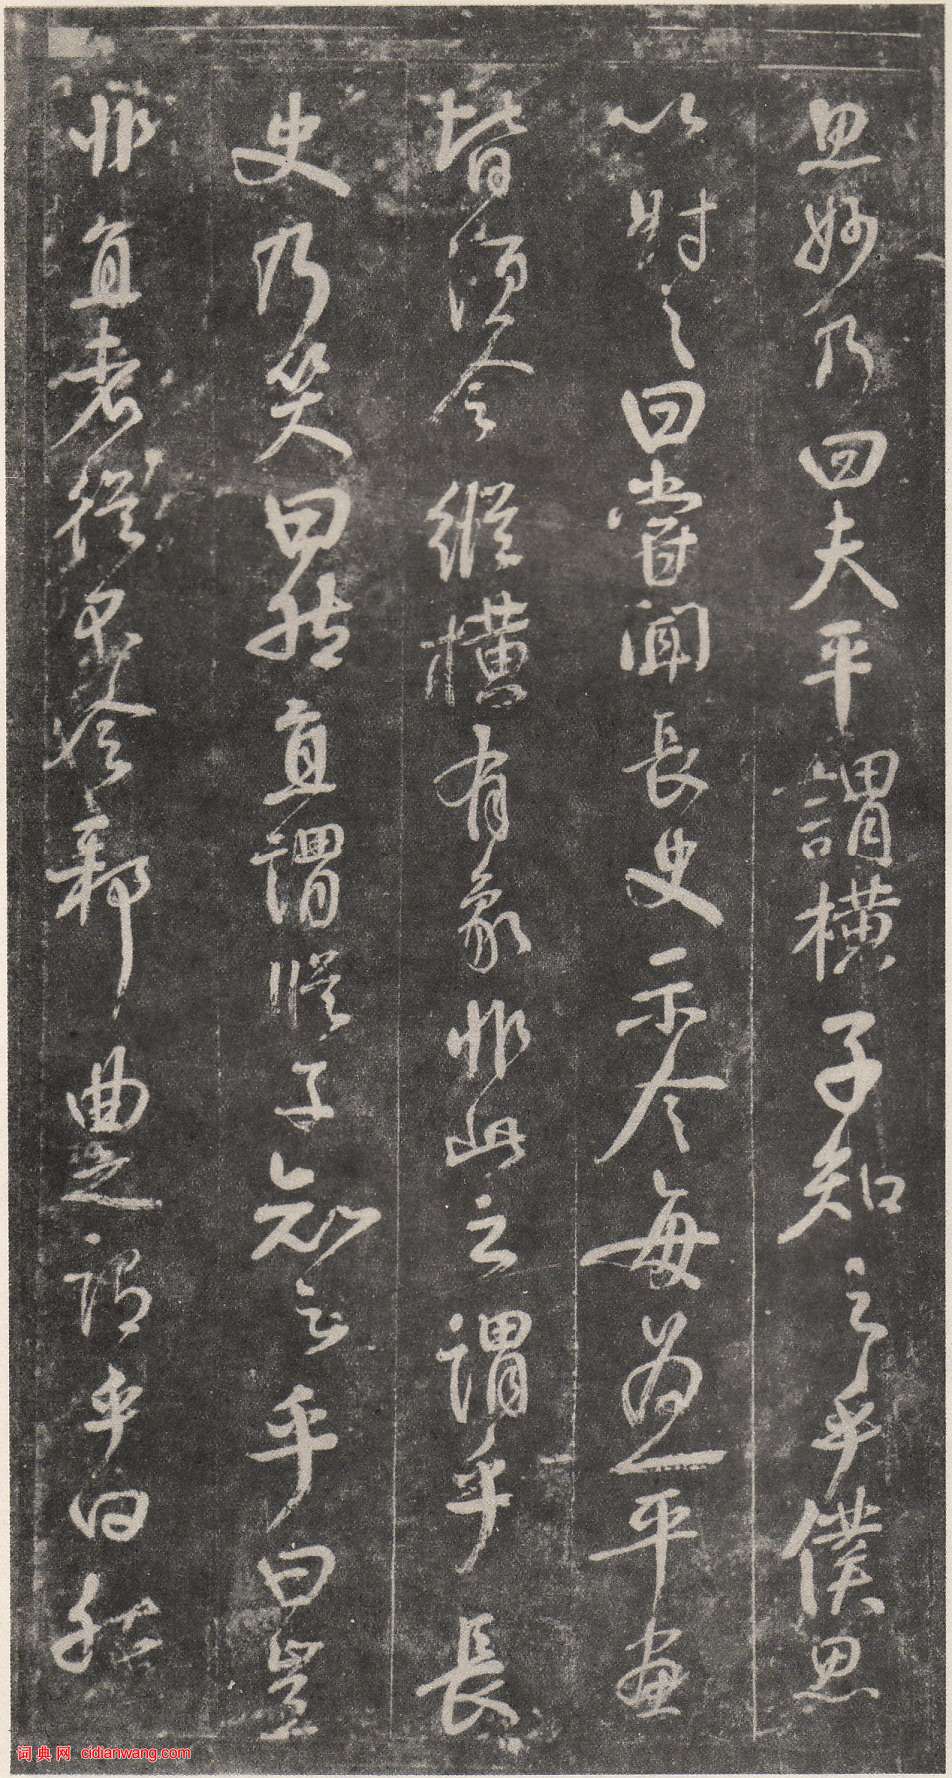 思妙乃曰夫平謂橫子知之乎僕思
以對之曰嘗聞長史示令每為一平畫
皆須令縱橫有象非此之謂乎長
史乃笑曰然直謂縱子知之乎曰豈
非直者從不令邪曲之謂乎曰然
词典网 cidianwang.com